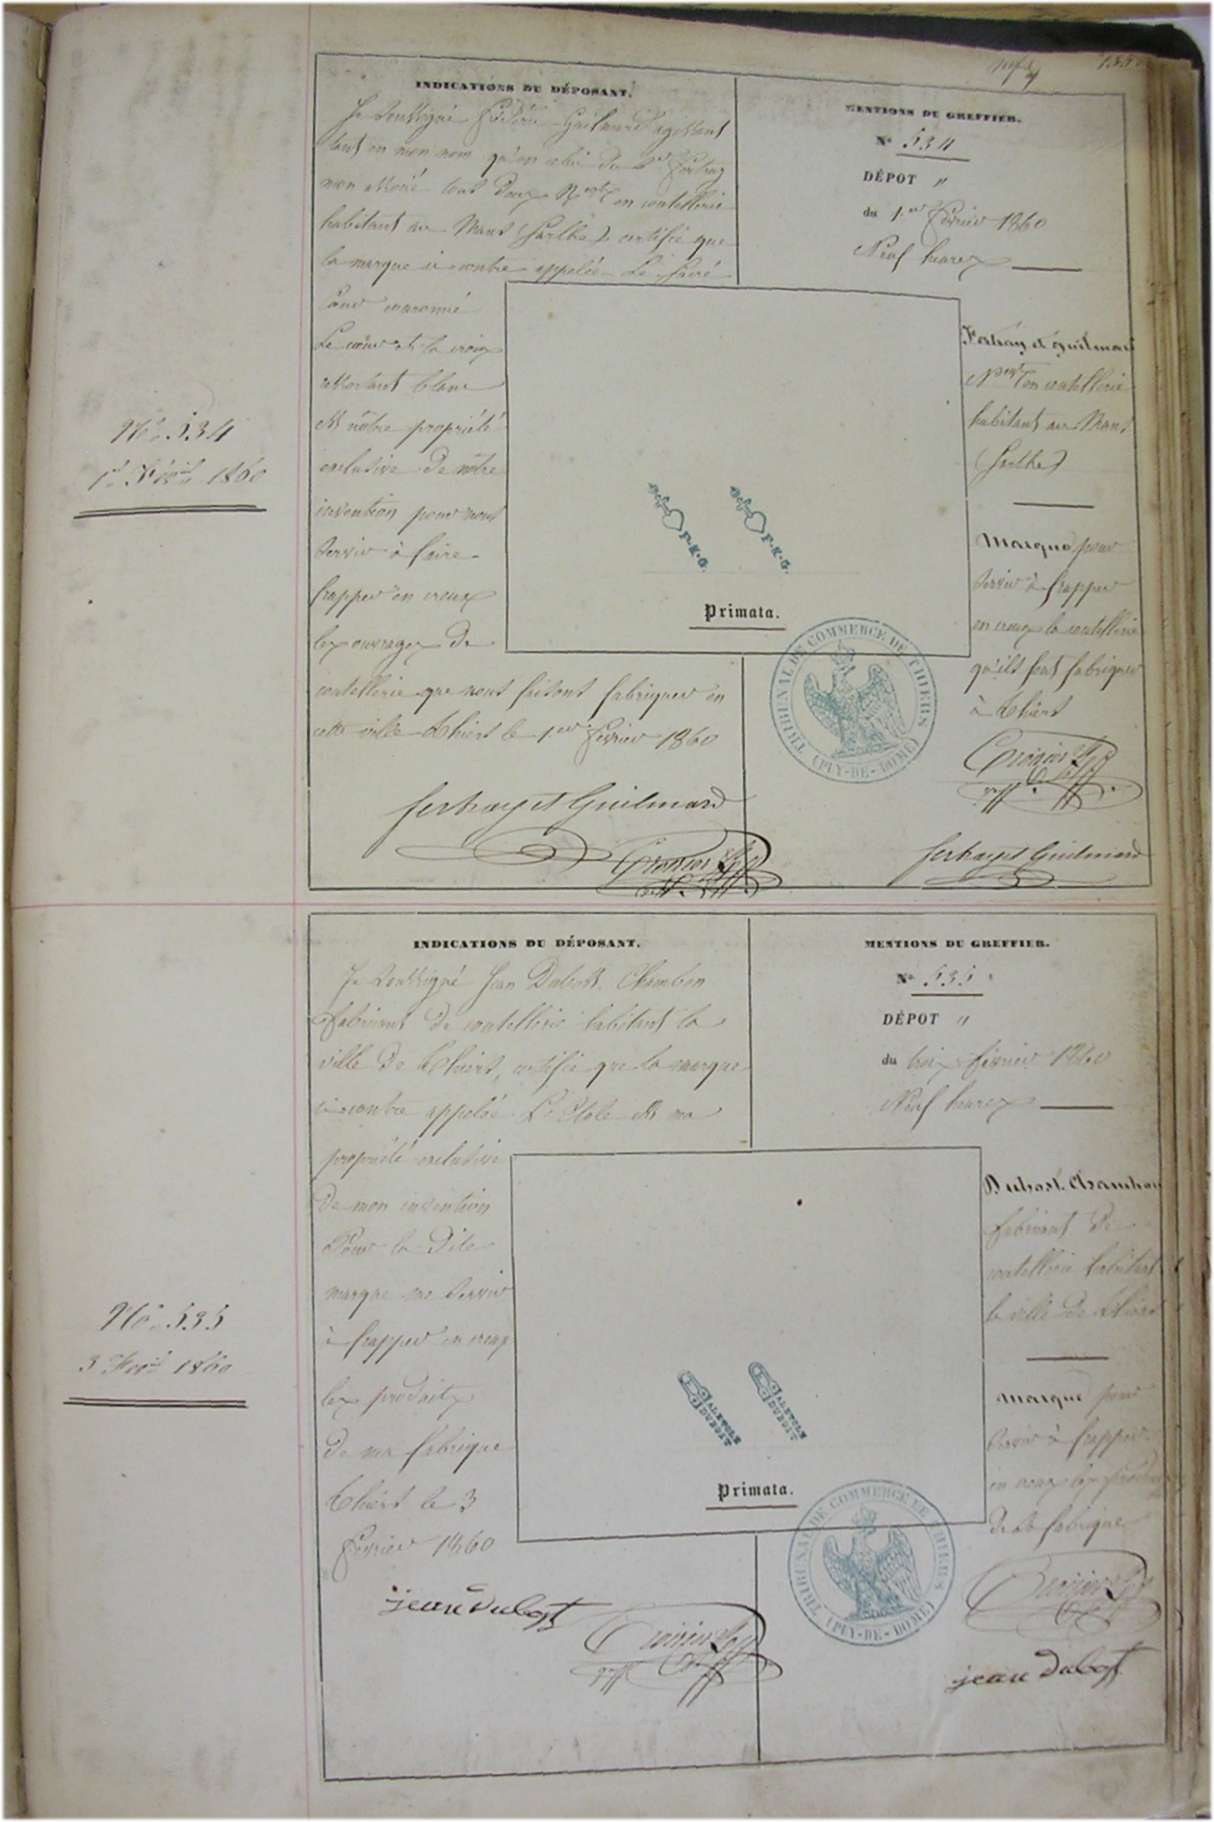 1860
INDICATIONS DU DÉPOSANT.
Je soussigné Frédéric Guilmard agissant
tant en mon nom qu'en celui du Sr Fertray
mon associé tous deux Nports en coutellerie
habitant au Mans (Sarthe) certifie que
la marque ci contre appelée Le Sacré
Cœur couronné
Le cœur et la croix
ressortant blanc
est nôtre propriété
exclusive de nôtre
invention pour nous
servir à faire
frapper en creux
les ouvrages de
coutellerie que nous faisons fabriquer en
cette ville Thiers le 1er Février 1860
fertray et Guilmard
MENTIONS DU GREFFIER.
No 534
DÉPOT "
du 1er Février 1860
Neuf heures
Fertray et Guilmard
Npts en coutellerie
habitant au Mans
(Sarthe)
Marque pour
servir à frapper
en creux la coutellerie
qu'ils font fabriquer
à Thiers
fertray et Guilmard
No. 534
1er Fév. 1860
F.K.G.
F.K.G.
Primata.
TRIBUNAL DE COMMERCE DE THIERS
(PUY-DE-DOME)
INDICATIONS DU DÉPOSANT.
Je soussigné Jean Dubost Chambon
fabricant de coutellerie habitant la
ville de Thiers, certifie que la marque
ci contre appelée L'Etole est ma
propriété exclusive
de mon invention
Pour la dite
marque me servir
à frapper en creux
les produits
de ma fabrique
Thiers le 3
Février 1860
jean dubost
MENTIONS DU GREFFIER.
No 535
DÉPOT "
du trois février 1860
Neuf heures
Dubost Chambon
fabricant de
coutellerie habitant
la ville de Thiers
Marque pour
servir à frapper
en creux les produits
de sa fabrique
jean dubost
No. 535
3 Fév. 1860
ALETOLE
DUBOST
ALETOLE
DUBOST
Primata.
TRIBUNAL DE COMMERCE DE THIERS
(PUY-DE-DOME)